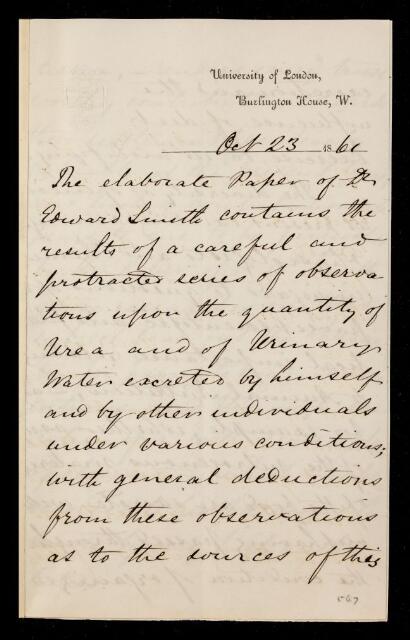 University of London,
Burlington House, W.
Oct 23 1861
The elaborate Paper of Dr
Edward Smith contains the
results of a careful and
protracted series of observa-
tions upon the quantity of
Urea and of Urinary
Water excreted by himself
and by other individuals
under various conditions;
with general deductions
from these observations
as to the sources of this
567